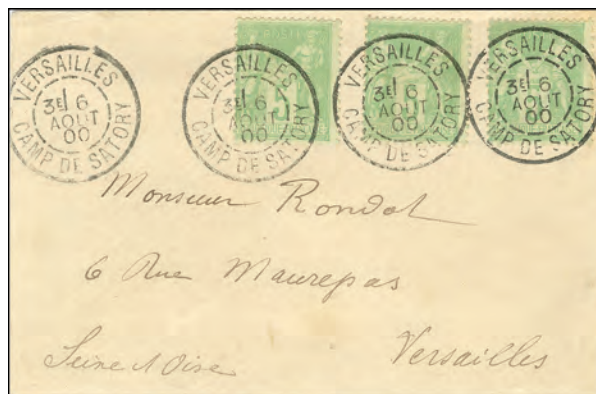 VERSAILLES
3E 6
AOUT
00
CAMP DE SATORY
VERSAILLES
3E 6
AOUT
00
CAMP DE SATORY
VERSAILLES
3E 6
AOUT
00
CAMP DE SATORY
VERSAILLES
3E 6
AOUT
00
CAMP DE SATORY
Monsieur Rondot
6 Rue Maurepas
Versailles
Seine & Oise